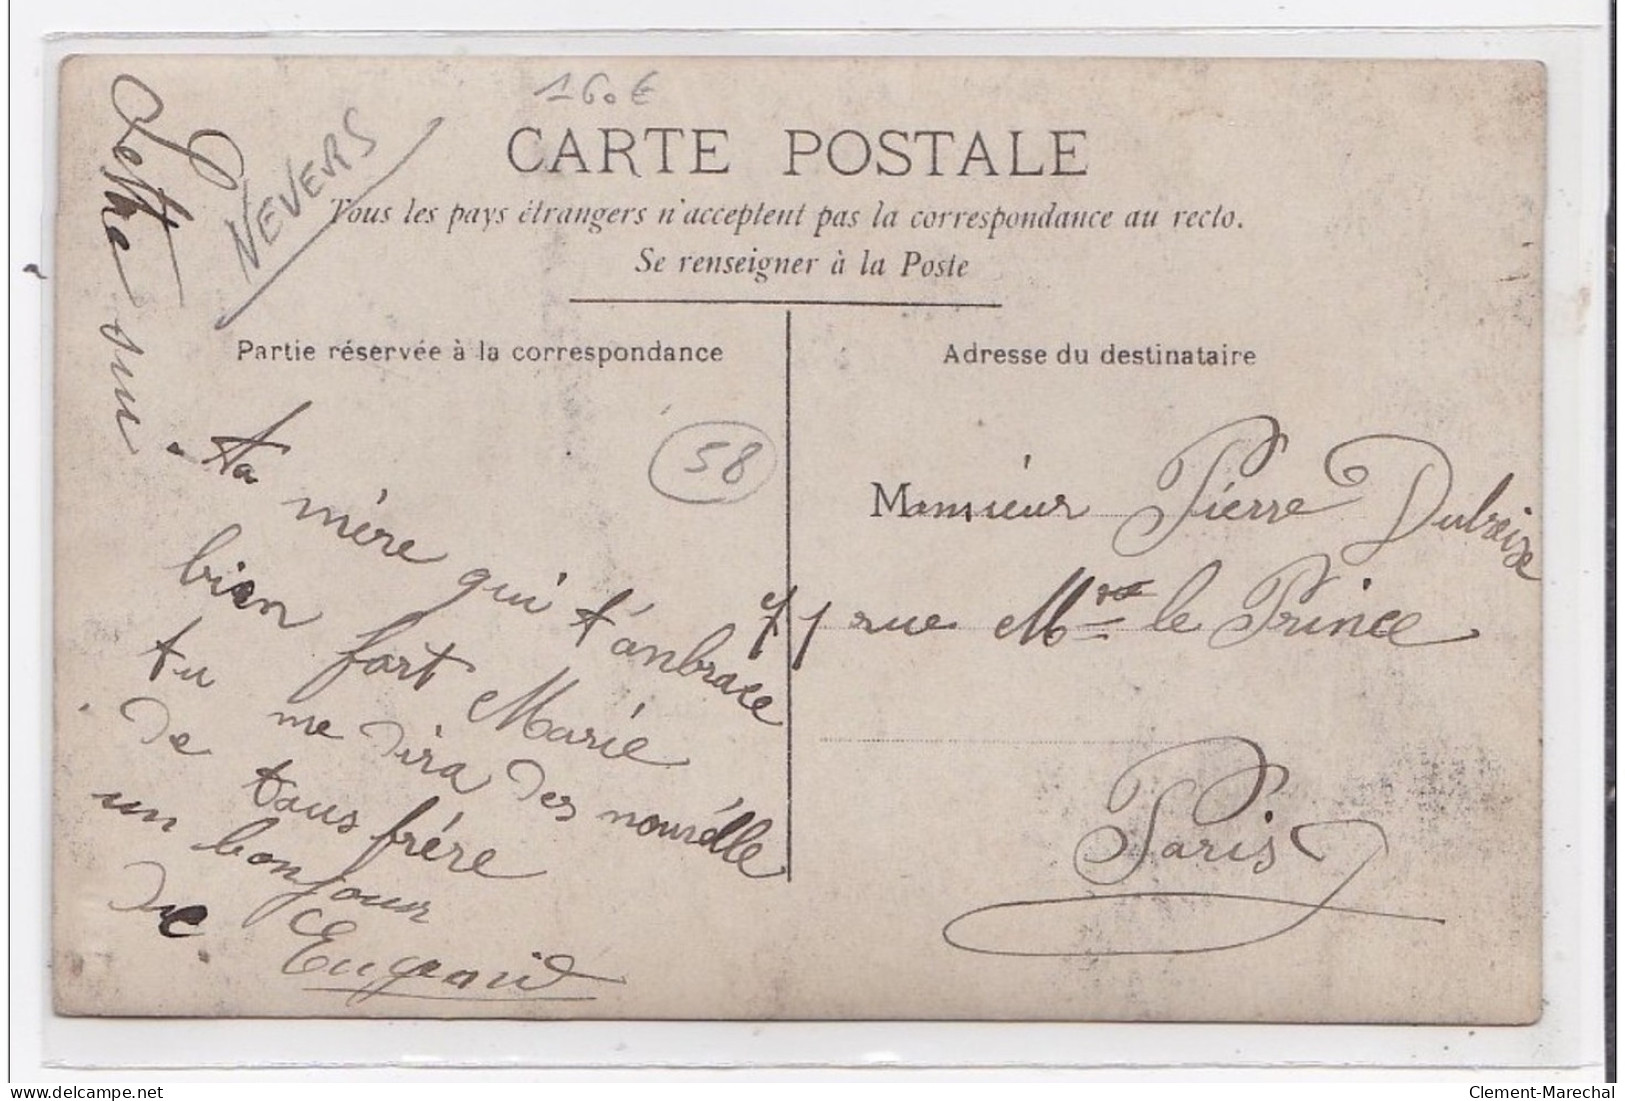 160€
CARTE POSTALE
Tous les pays étrangers n'acceptent pas la correspondance au recto.
Se renseigner à la Poste
NEVERS
Lettre
Partie réservée à la correspondance
58
ta
mère qui t'anbrace
bien fort Marie
tu me dira des nouvélle
de tous frère
un bonjour
de
Adresse du destinataire
Monsieur Pierre
rue Mr le Prince
Paris
Clement-Marechal